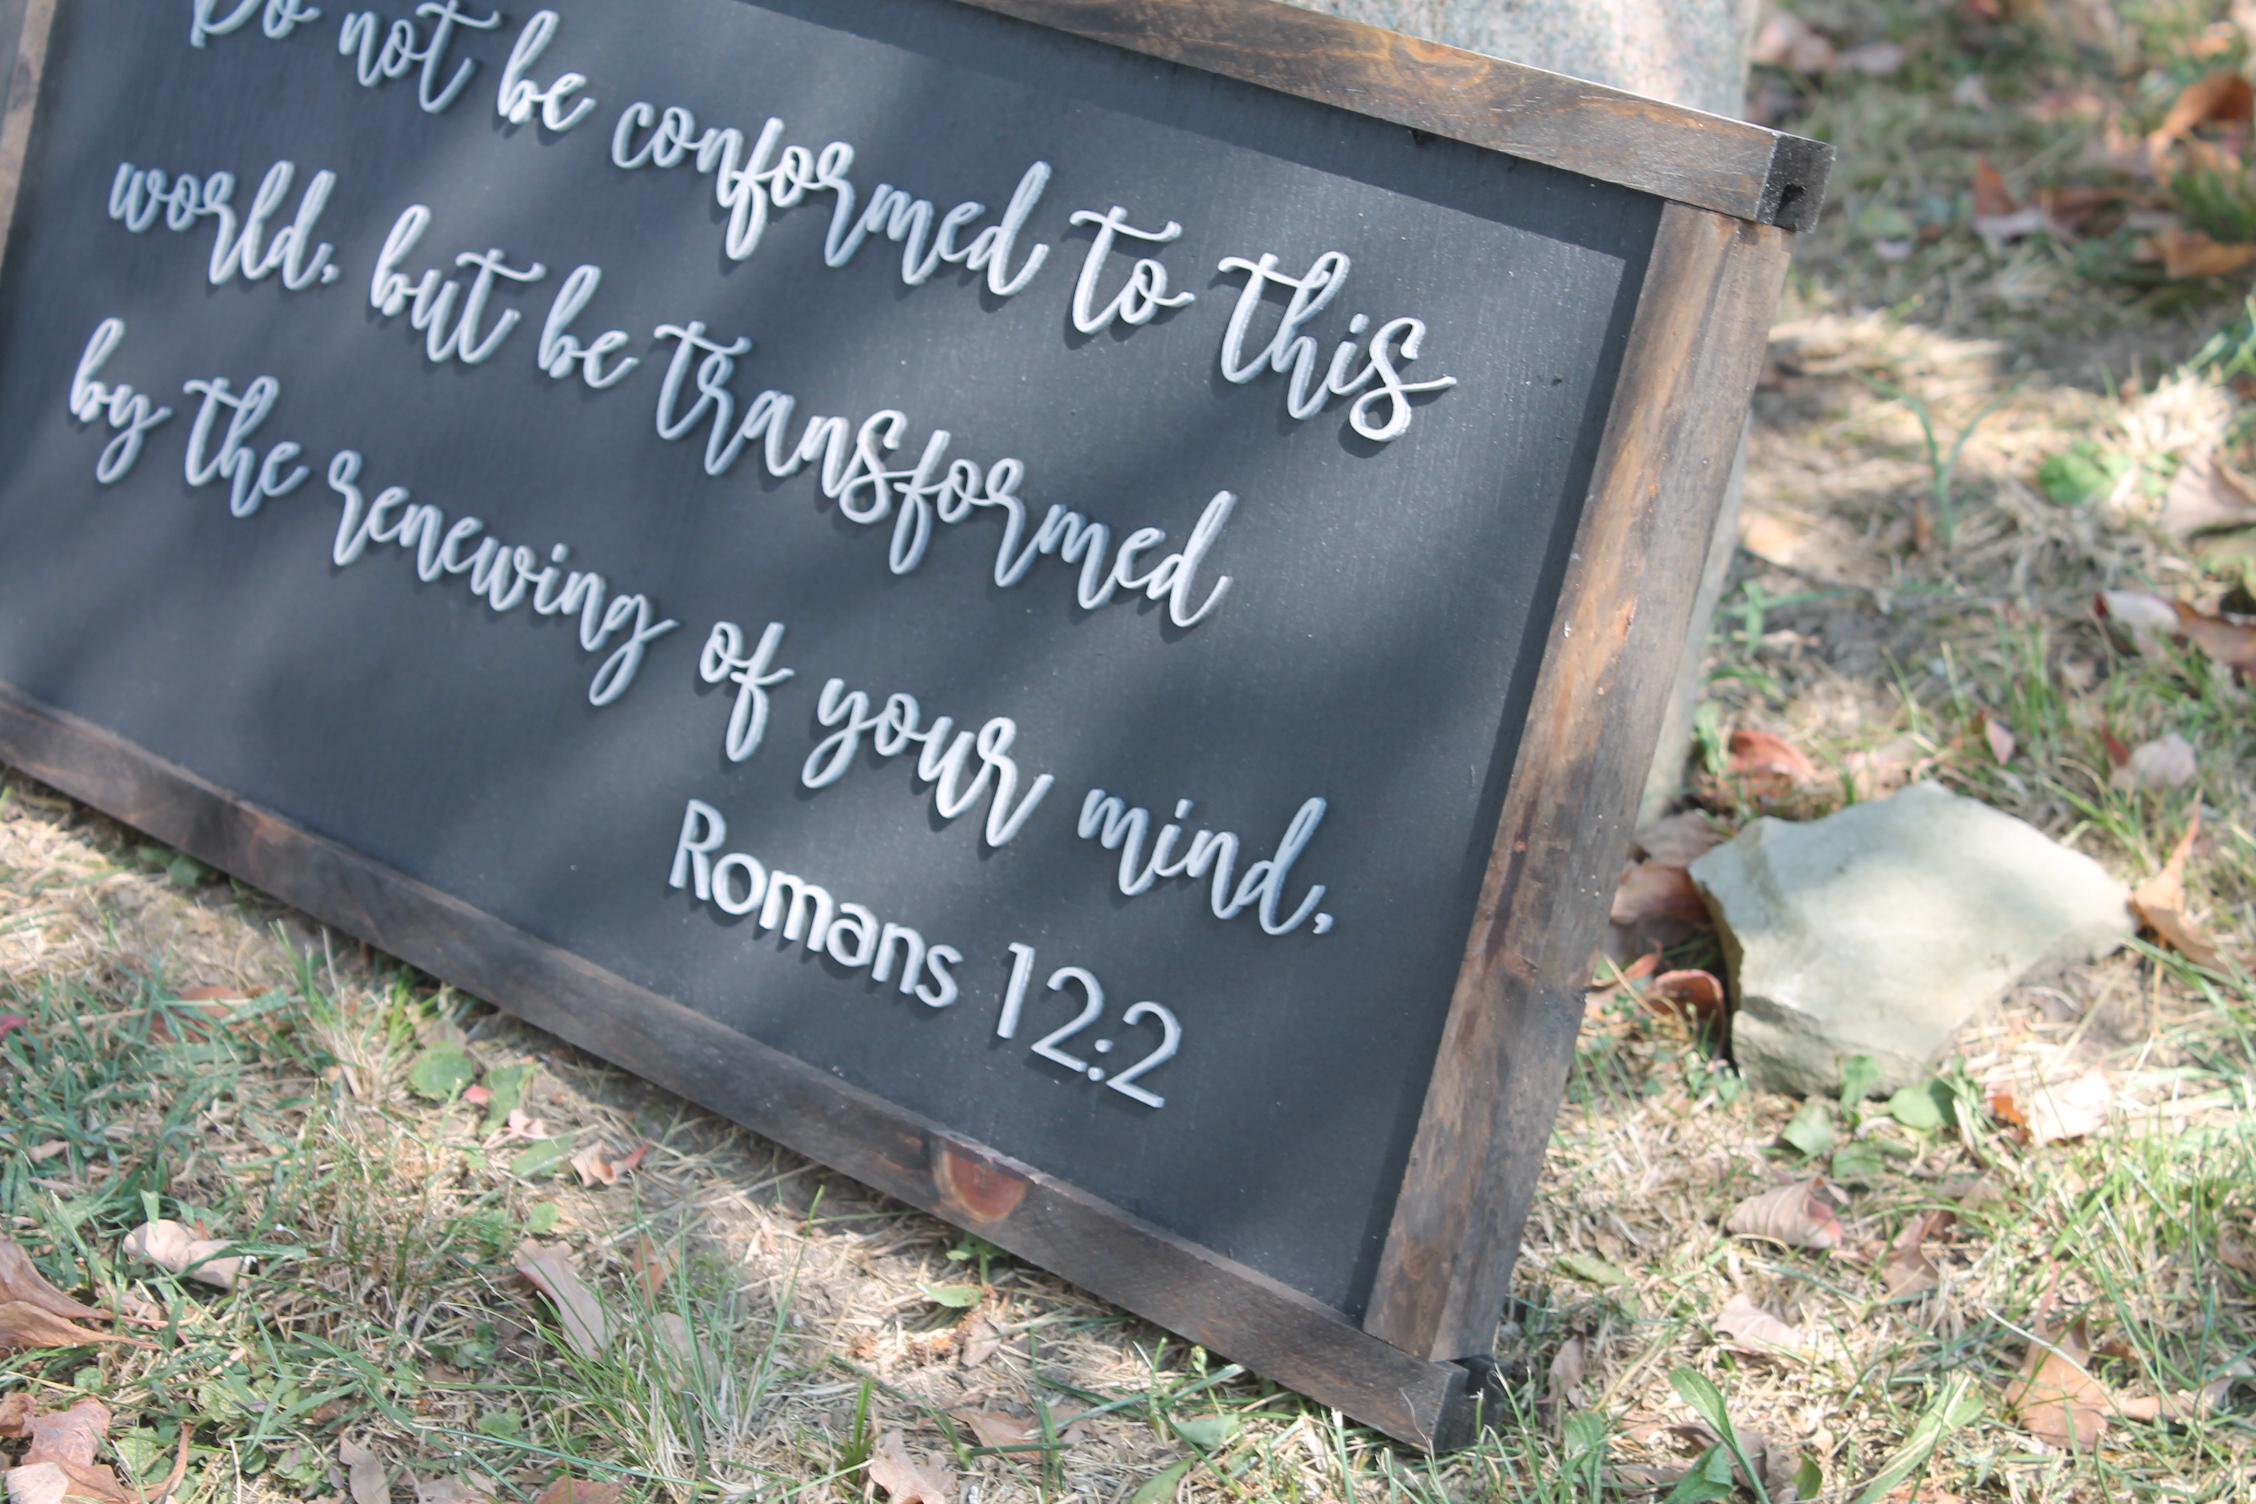 Do not be conformed to this
world, but be transformed
by the renewing of your mind,
Romans 12:2